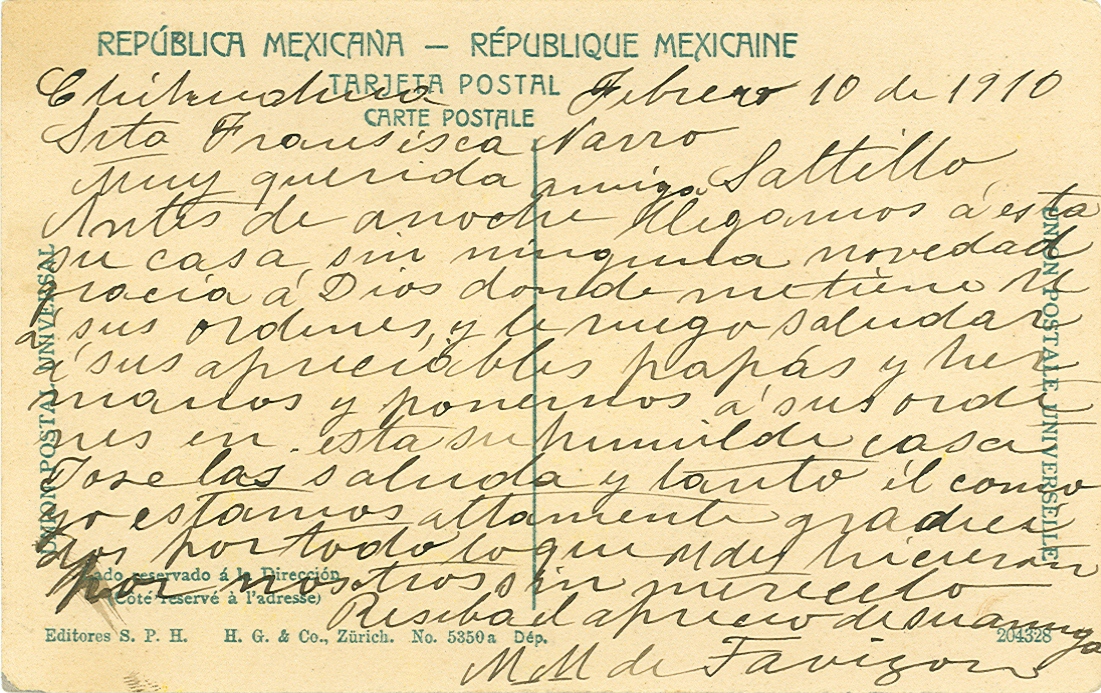 REPÚBLICA MEXICANA — RÉPUBLIQUE MEXICAINE
TARJETA POSTAL
CARTE POSTALE
Chihuahua Febrero 10 de 1910
Srta Francisca Narro
Muy querida amiga Saltillo
Antes de anoche llegamos á esta
su casa sin ninguna novedad
gracia á Dios donde me tiene U
á sus ordenes, y le ruego saludar
á sus apreciables papás y her
manos y ponernos á sus orde
nes en esta su humilde casa
Jose las saluda y tanto él como
yo estamos altamente gradeci
dos por todo lo que Udes hicieron
por nosotros sin merecelo
Resiba el aprecio de su amiga
M M de Favizon
UNION POSTAL UNIVERSAL
UNION POSTALE UNIVERSELLE
Lado reservado á la Dirección
(Côté réservé à l'adresse)
Editores S. P. H. H. G. & Co., Zürich. No. 5350a Dép. 204328